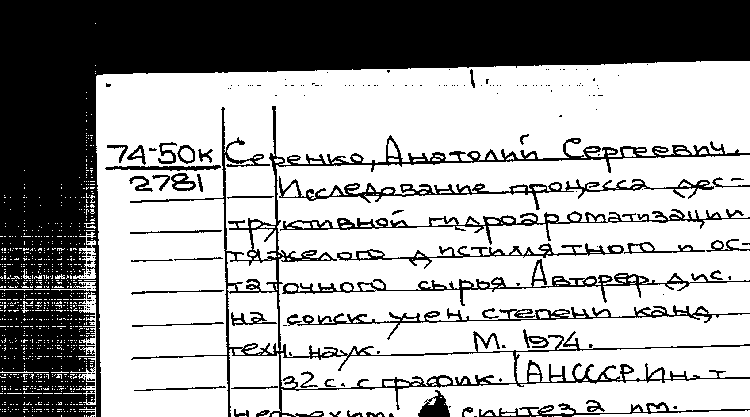 74-50к Серенко, Анатолий Сергеевич.
2781 Исследование процесса дес-
труктивной гидроароматизации
тяжелого дистиллятного и ос-
таточного сырья. Автореф. дис.
на соиск. учен. степени канд.
техн. наук. М. 1974.
32 с. с график. (АН СССР. Ин-т
нефтехим. синтеза им.